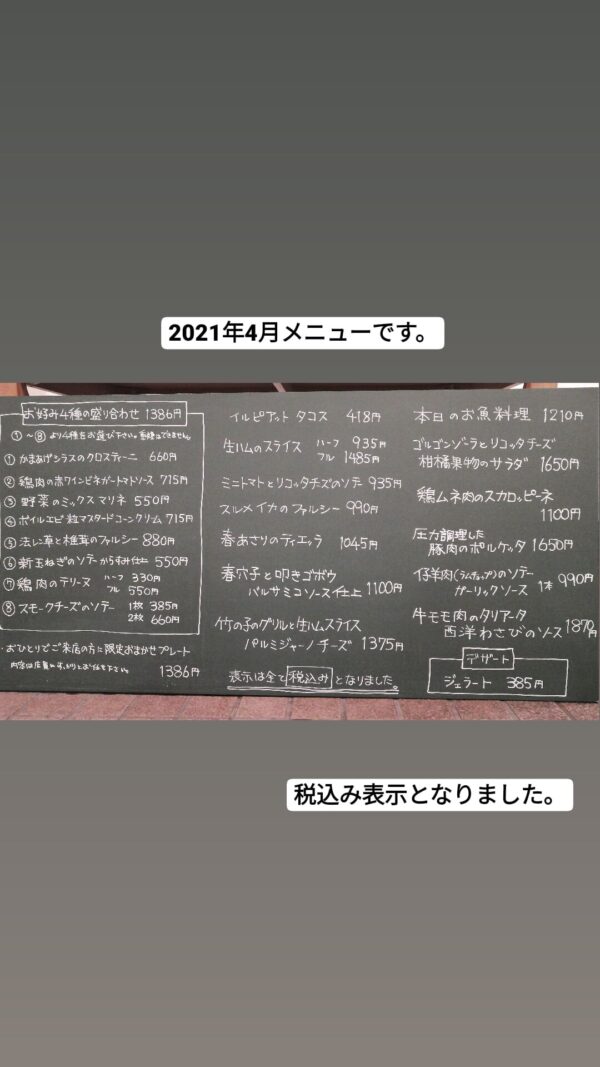 2021年4月メニューです。
お好み4種の盛り合わせ 1386円
①〜⑧ より4種をお選び下さい。
① かまあげシラスのクロスティーニ 660円
② 鶏肉の赤ワインビネガートマトソース 715円
③ 野菜のミックスマリネ 550円
④ ボイルエビ 粒マスタードコーンクリム 715円
⑤ 法レン草と椎茸のファルシー 880円
⑥ 新玉ねぎのソテー からすみ仕立 550円
⑦ 鶏肉のテリーヌ ハーフ 330円
フル 550円
⑧ スモークチーズのソテー 1枚 385円
2枚 660円
・おひとりでご来店の方に限定おまかせプレート
1386円
イルピアット タコス 418円
生ハムのスライス ハーフ 935円
フル 1485円
ミニトマトとリコッタチーズのソテー 935円
スルメイカのファルシー 990円
春あさりのティエッラ 1045円
春穴子と叩きゴボウ
バルサミコソース仕上 1100円
竹の子のグリルと生ハムスライス
パルミジャーノチーズ 1375円
表示は全て税込みとなりました。
本日のお魚料理 1210円
ゴルゴンゾーラとリコッタチーズ
柑橘果物のサラダ 1650円
鶏ムネ肉のスカロッピーネ
1100円
圧力調理した
豚肉のポルケッタ 1650円
仔羊肉(ラムチョップ)のソテー
ガーリックソース 1本 990円
牛モモ肉のタリアータ
西洋わさびのソース 1870円
デザート
ジェラート 385円
税込み表示となりました。